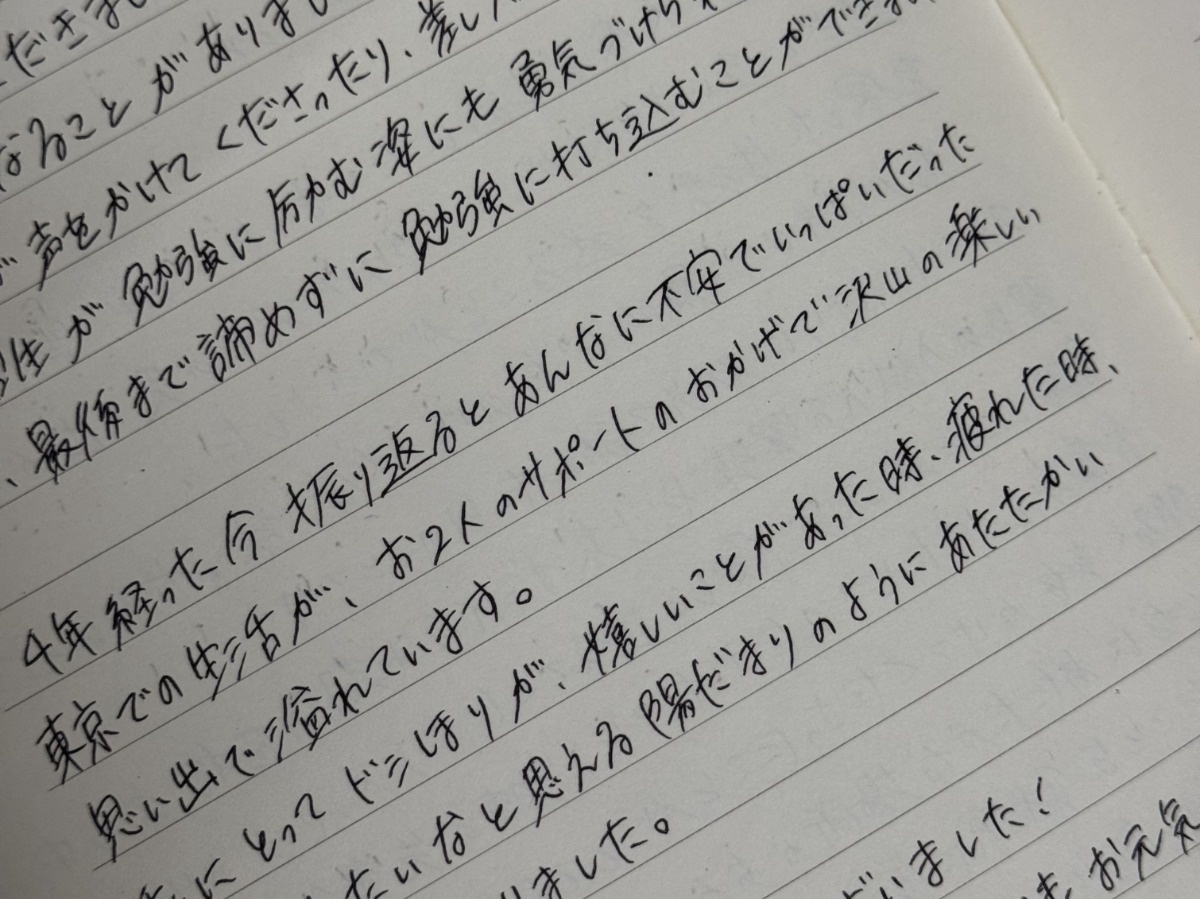 だきまし
なることがありまし
声をかけてくださったり、差し
生が勉強に励む姿にも勇気づけられ
、最後まで諦めずに勉強に打ち込むことができま
4年経った今振り返るとあんなに不安でいっぱいだった
東京での生活が、お2人のサポートのおかげで沢山の楽しい
思い出で溢れています。
にとってドミほりが、嬉しいことがあった時、疲れた時、
たいなと思える陽だまりのようにあたたかい
りました。
ざいました!
お元気